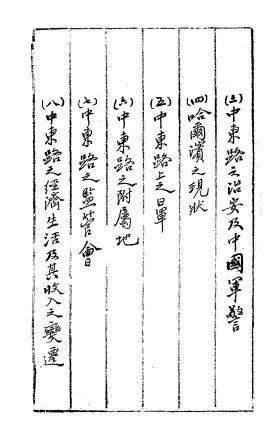 (三)中東路之治安及中國軍警
(四)哈爾濱之現狀
(五)中東路上之日軍
(六)中東路之附屬地
(七)中東路之監管會
(八)中東路之經濟生活及其收入之變遷